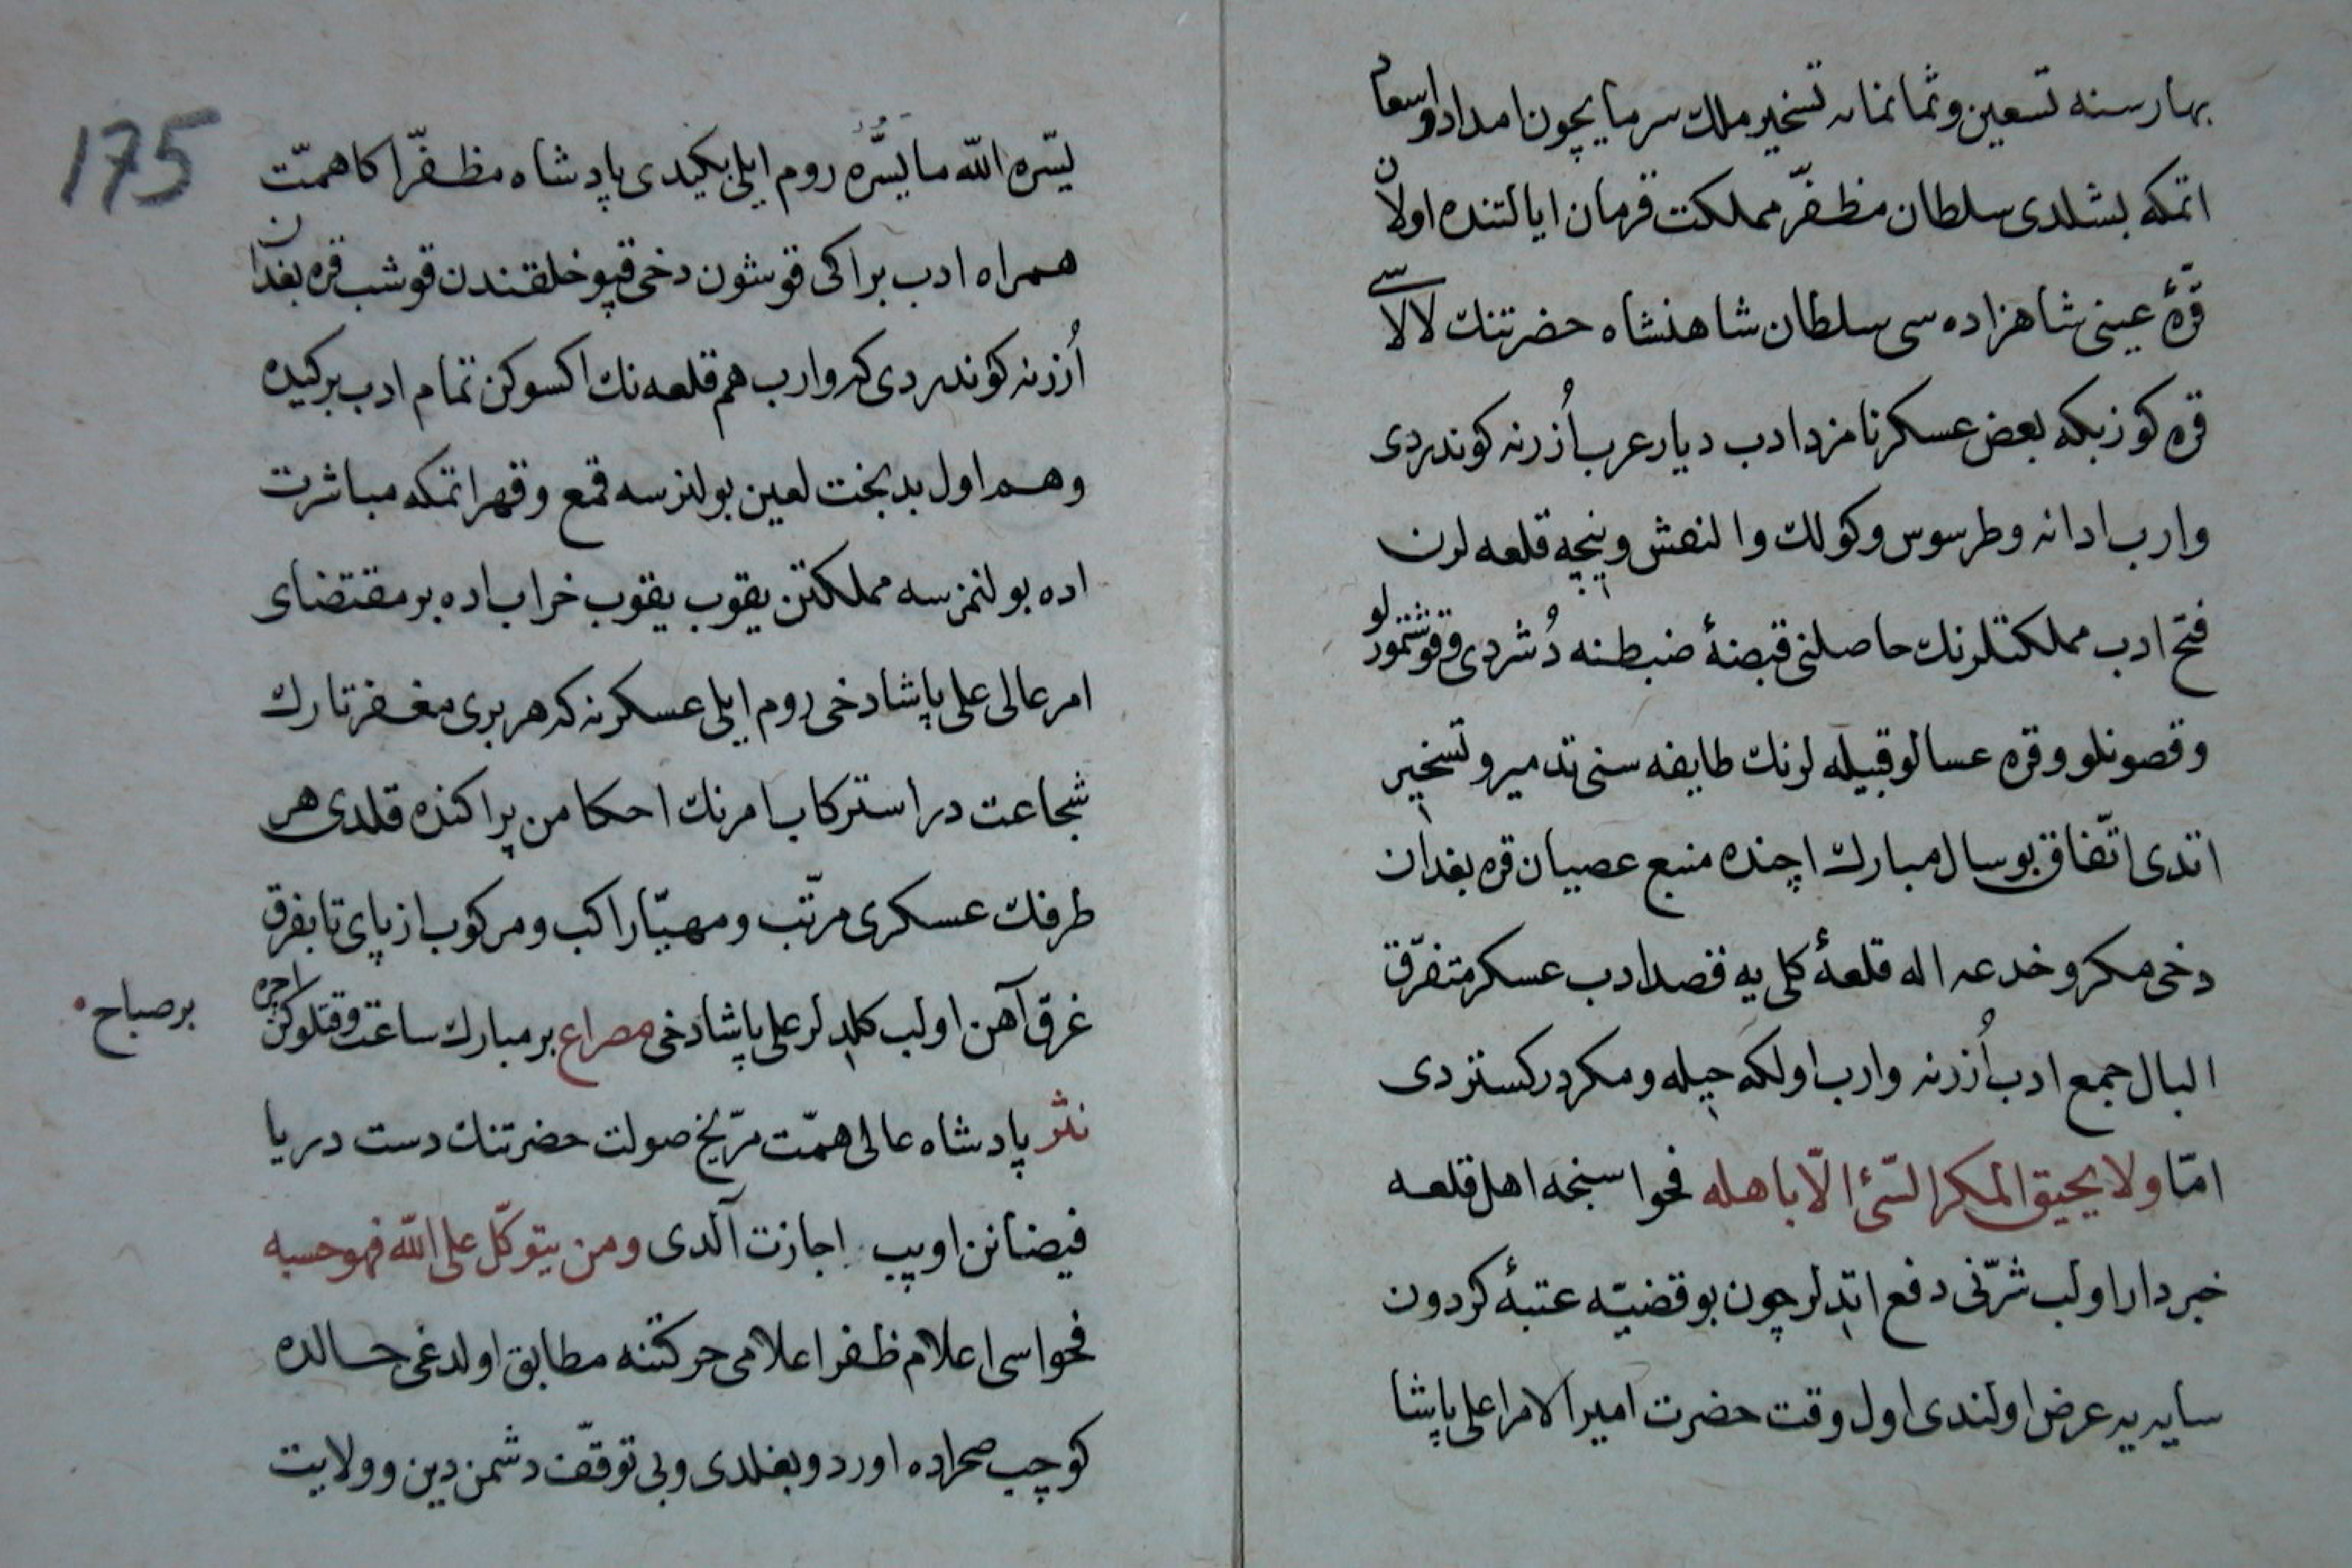 بهار سنه تسعین و ثمانمانه تسخیر ملك سرمایچون امداد و اسعام
اتمكه بشلدی سلطان مظفّر مملكت قرمان ایالتنده اولان
قرّۀ عینی شاهزاده سی سلطان شاهنشاه حضرتنك لالاسی
قره كوز بكه بعض عسكر نامزد ادب دیار عرب اُزرنه كوندردی
وارب ادانه و طرسوس و كولك و النقش و نیچه قلعه لرن
فتح ادب مملكتلرنك حاصلنی قبضۀ ضبطنه دُشردی و قوشتمورلو
و قصونلو و قره عسالو قبیله لرنك طایفه سنی تدمیر و تسخیر
اتدی اتّفاق بو سال مبارك اچنده منبع عصیان قره بغدان
دخی مكر و خدعه اله قلعۀ كلی یه قصد ادب عسكر متفرّق
البال جمع ادب اُزرنه وارب اولكه حیله و مكر در كستردی
امّا ولا یحیق المكر السّیئ الّا باهله فحواسنجه اهل قلعه
خبردار اولب شرّنی دفع اتدلر چون بو قضیّه عتبۀ كردون
سایه یه عرض اولندی اول وقت حضرت امیر الامرا علی پاشا
175
یسّره الله ما یسَّره روم ایلی بكیدی پادشاه مظفّر اكا همّت
همراه ادب بر اكی قوشون دخی قپو خلقندن قوشب قره بغدان
اُزرنه كوندردی كه وارب هم قلعه نك اكسوكن تمام ادب بركیده
و هم اول بدبخت لعین بولنرسه قمع و قهر اتمكه مباشرت
اده بولنمزسه مملكتن یقوب یقوب خراب اده بر مقتضای
امر عالی علی پاشا دخی روم ایلی عسكرنه كه هر بری مغفر تارك
شجاعت در استركاب امرنك احكامن پراكنده قلدی هر
طرفنك عسكری مرتّب و مهیّا راكب و مركوب از پای تا بفرق
غرق آهن اولب كلدلر علی پاشا دخی مصراع بر مبارك ساعت و قتلو كن اچره
بر صباح
نثر پادشاه عالی همّت مرّیخ صولت حضرتنك دست دریا
فیضانن اوپب اجازت آلدی و من یتوكّل علی الله فهو حسبه
فحواسی اعلام ظفر اعلامی حركتنه مطابق اولدغی حالده
كوچب صحراده اوردو بغلدی و بی توقّف دشمن دین و ولایت